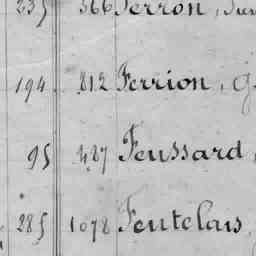 235 366 Ferron,
194 812 Ferrion, G
95 487 Feussard,
285 1078 Fentelais,